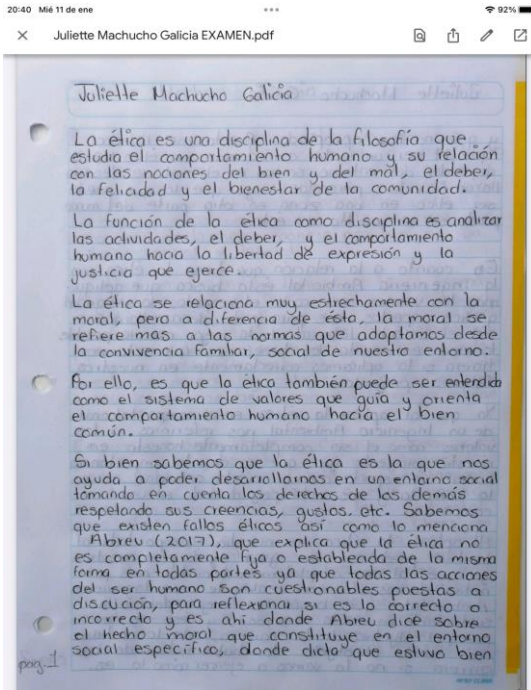 20:40 Mié 11 de ene
92%
Juliette Machucho Galicia EXAMEN.pdf
Juliette Machucho Galicia
La ética es una disciplina de la filosofía que
estudia el comportamiento humano y su relación
con las nociones del bien y del mal, el deber,
la felicidad y el bienestar de la comunidad.
La función de la ética como disciplina es analizar
las actividades, el deber, y el comportamiento
humano hacia la libertad de expresión y la
justicia que ejerce.
La ética se relaciona muy estrechamente con la
moral, pero a diferencia de ésta, la moral se
refiere más a las normas que adoptamos desde
la convivencia familiar, social de nuestro entorno.
Por ello, es que la ética también puede ser entendida
como el sistema de valores que guía y orienta
el comportamiento humano hacia el bien
común.
Si bien sabemos que la ética es la que nos
ayuda a poder desarrollarnos en un entorno social
tomando en cuenta los derechos de los demás
respetando sus creencias, gustos, etc. Sabemos
que existen fallos éticos así como lo menciona
Abreu (2017), que explica que la ética no
es completamente fija o establecida de la misma
forma en todas partes ya que todas las acciones
del ser humano son cuestionables puestas a
discución, para reflexionar si es lo correcto o
incorrecto y es ahí donde Abreu dice sobre
el hecho moral que constituye en el entorno
social específico, donde dicta que estuvo bien
pag. 1